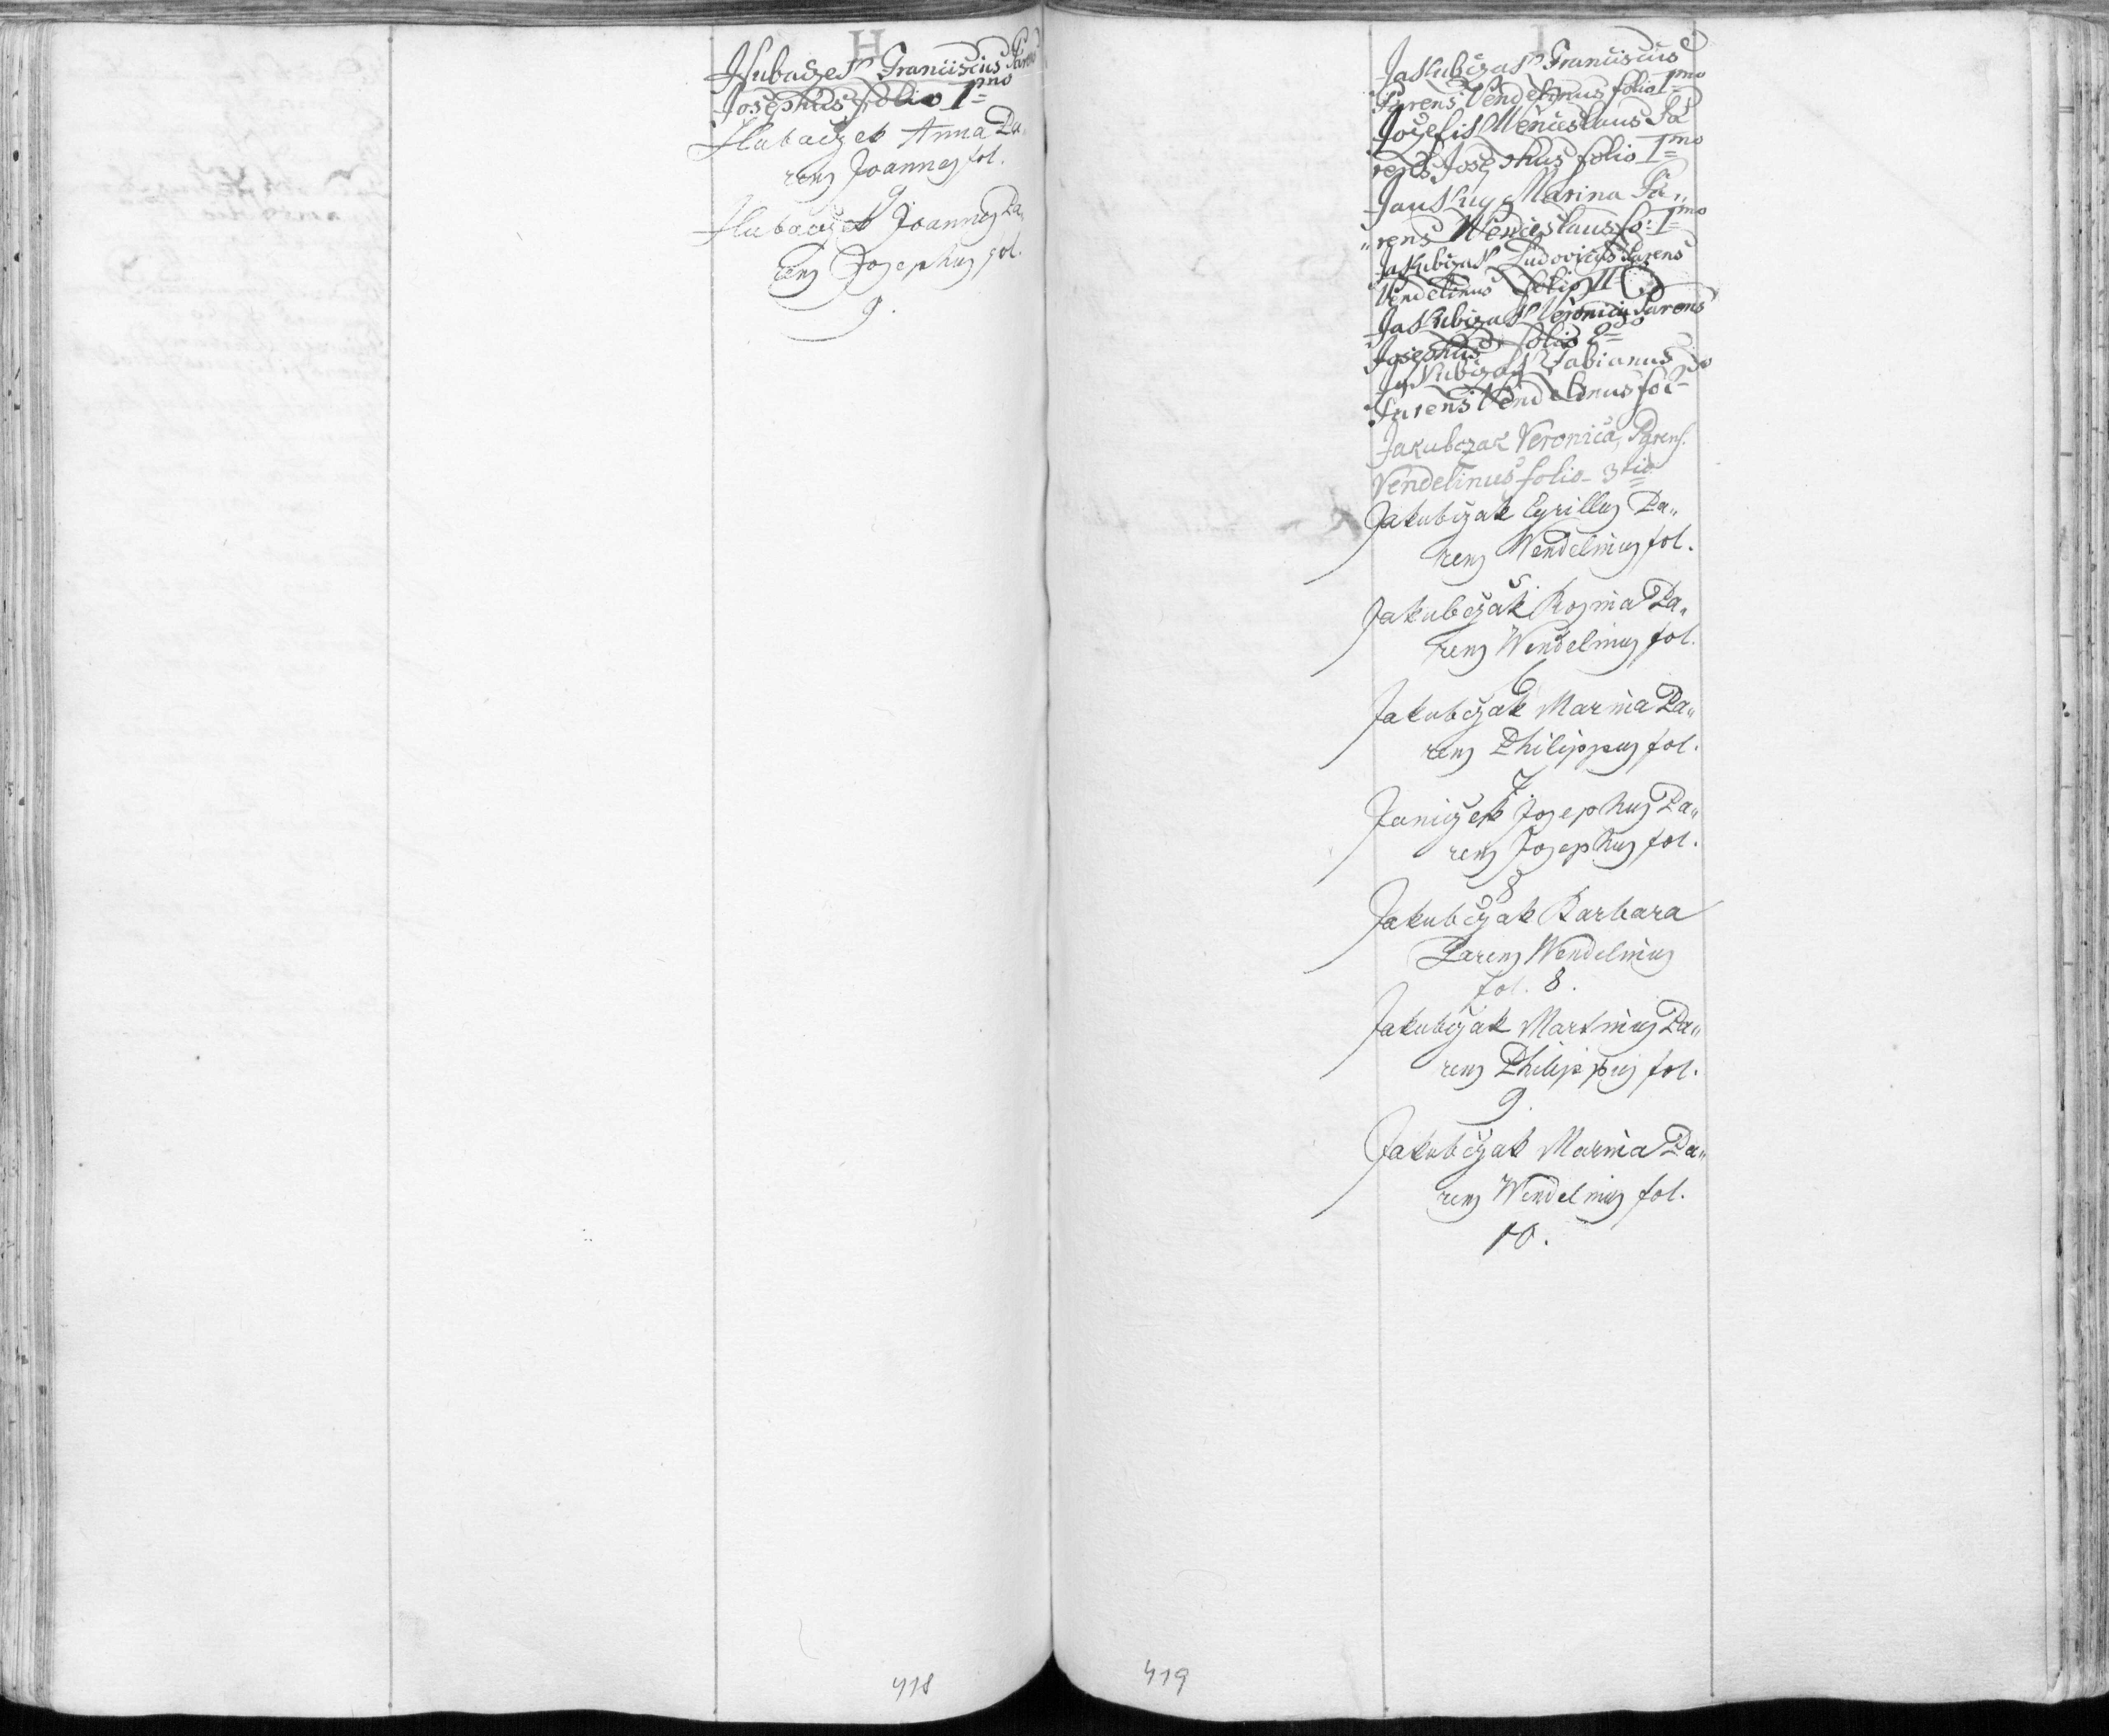 H
Hubaczek Franciscus Parens
Josephus folio 1mo
Hubaczek Anna Pa„
rens Joannes fol.
9
Hubaczek Joannes Pa„
rens Josephus fol.
9.
418
I
Jakubczak Franciscus
Parens Vendelinus folio 1mo
Jozefik Wenceslaus Pa
rens Josephus folio 1mo
Marina Pa„
„rens Wenceslaus fo: 1mo
Jakubczak Ludovicus Parens
Vendelinus folio II
Jakubczak Veronica Parens
Josephus folio 2do
Jakubczak Fabianus
Parens Vendelinus fol 2do
Jakubczak Veronica, Parens.
Vendelinus folio 3tio
Jakubczak Cyrillus Pa„
rens Wendelinus fol.
5.
Jakubczak Rosina Pa„
rens Wendelinus fol.
6
Jakubczak Marina Pa„
rens Philippus fol.
7
Janiczek Josephus Pa„
rens Josephus fol.
8
Jakubczak Barbara
Parens Wendelinus
fol. 8.
Jakubczak Martinus Pa„
rens Philippus fol.
9.
Jakubczak Marina Pa„
rens Wendelinus fol.
10.
419